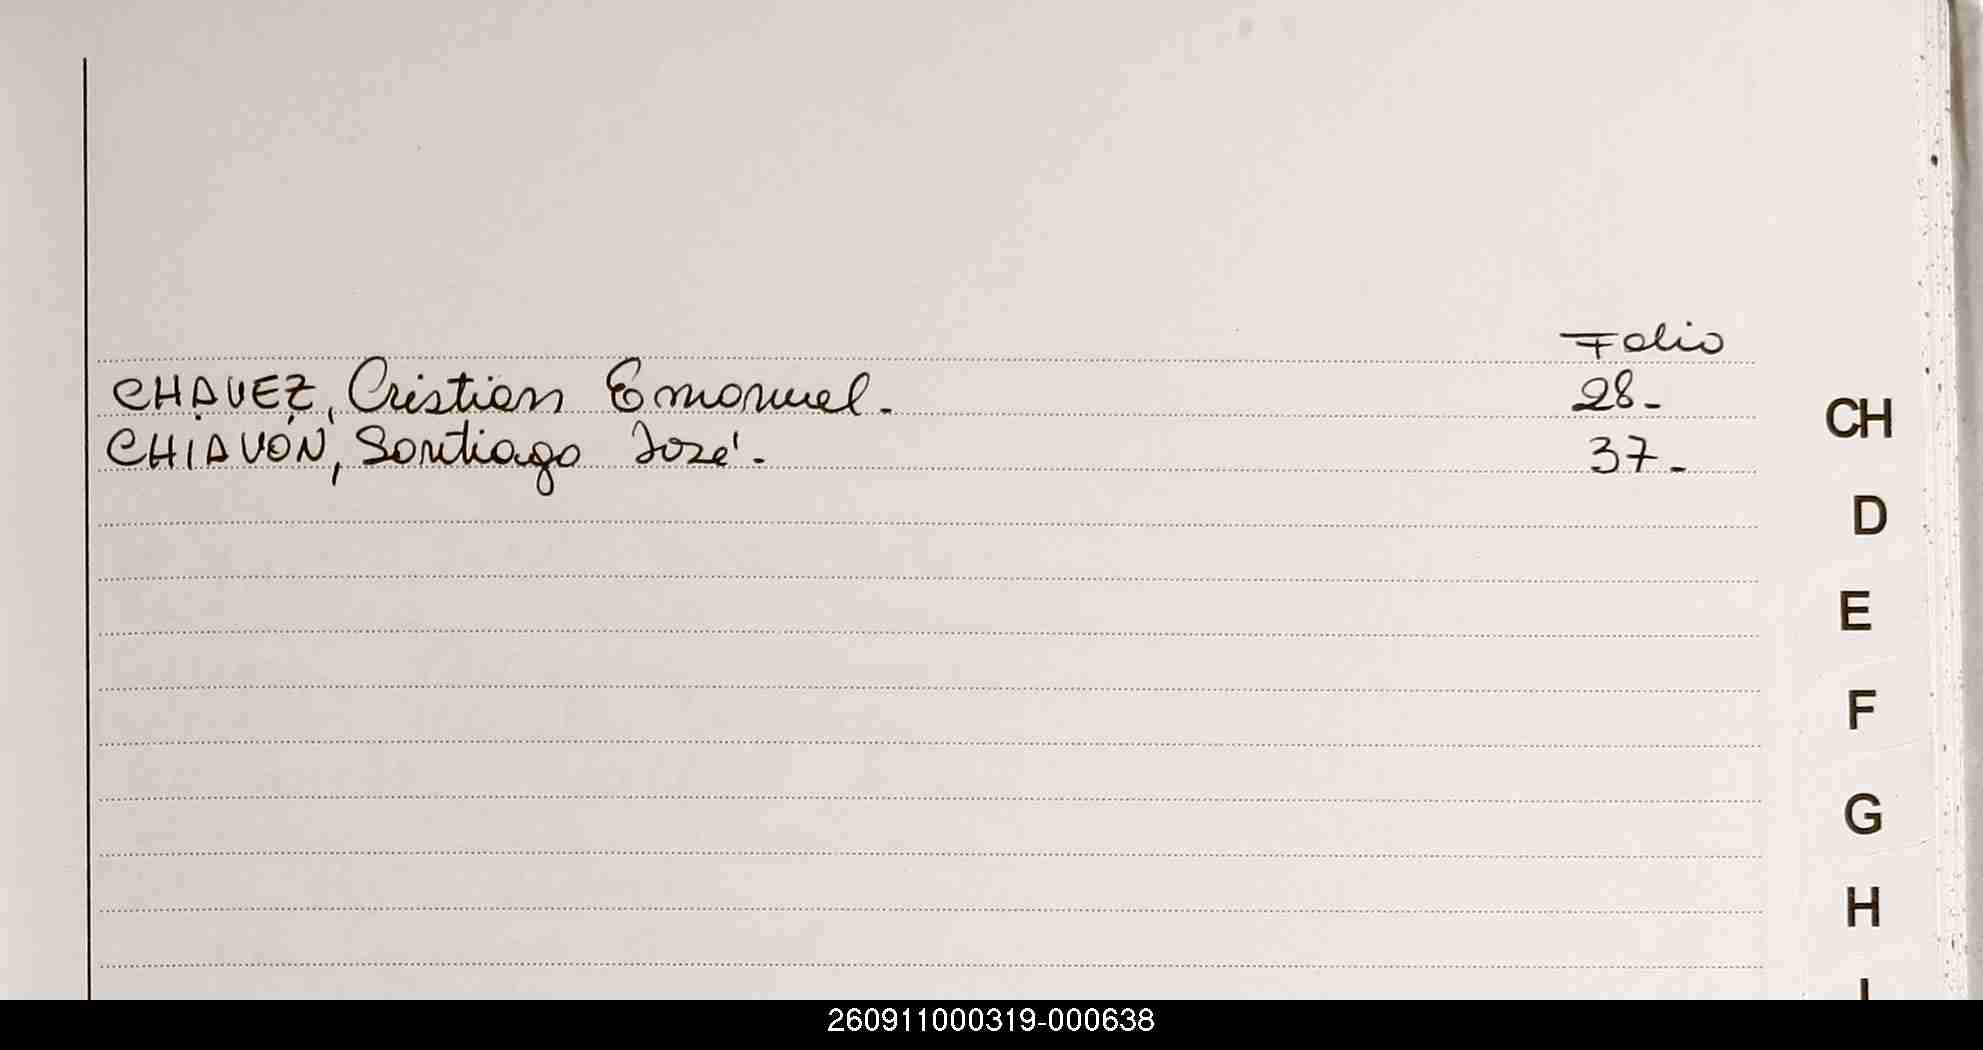 Folio
CHAVEZ, Cristian Emanuel. 28-
CHIAVÓN, Santiago José. 37-
CH
D
E
F
G
H
I
260911000319-000638